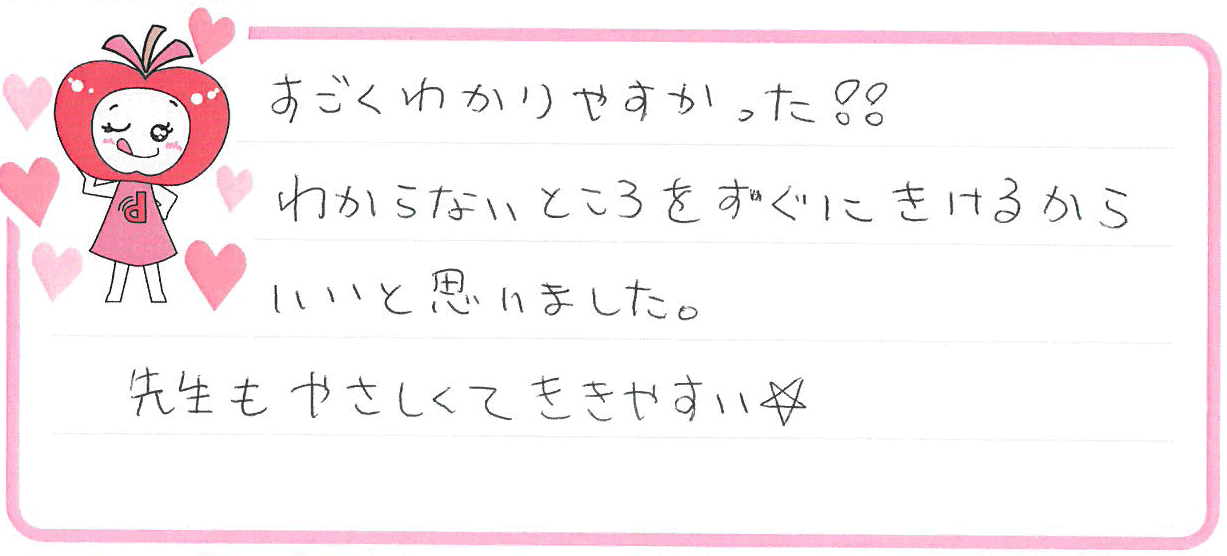 すごくわかりやすかった!!
わからないところをすぐにきけるから
いいと思いました。
先生もやさしくてききやすい☆